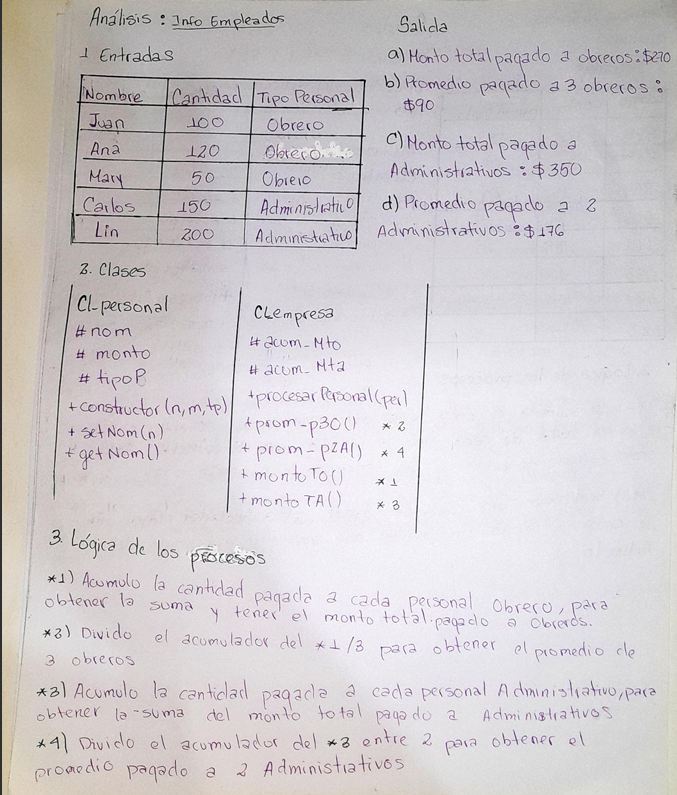 Análisis : Info Empleados
1 Entradas
Nombre Cantidad Tipo Personal
Juan 100 Obrero
Ana 120 Obrero
Mary 50 Obrero
Carlos 150 Administrativo
Lin 200 Administrativo
Salida
a) Monto total pagado a obreros: $270
b) Promedio pagado a 3 obreros :
$90
c) Monto total pagado a
Administrativos : $350
d) Promedio pagado a 2
Administrativos : $176
2. Clases
Cl_personal
# nom
# monto
# tipoP
+ constructor (n, m, tp)
+ setNom(n)
+ getNom()
CLempresa
# acum_Mto
# acum_Mta
+ procesarPersonal(per)
+ prom_p3O() *2
+ prom_p2A() *4
+ monto TO() *1
+ monto TA() *3
3. Lógica de los procesos
*1) Acumulo la cantidad pagada a cada personal Obrero, para
obtener la suma y tener el monto total pagado a Obreros.
*2) Divido el acumulador del *1/3 para obtener el promedio de
3 obreros
*3) Acumulo la cantidad pagada a cada personal Administrativo, para
obtener la suma del monto total pagado a Administrativos
*4) Divido el acumulador del *3 entre 2 para obtener el
promedio pagado a 2 Administrativos